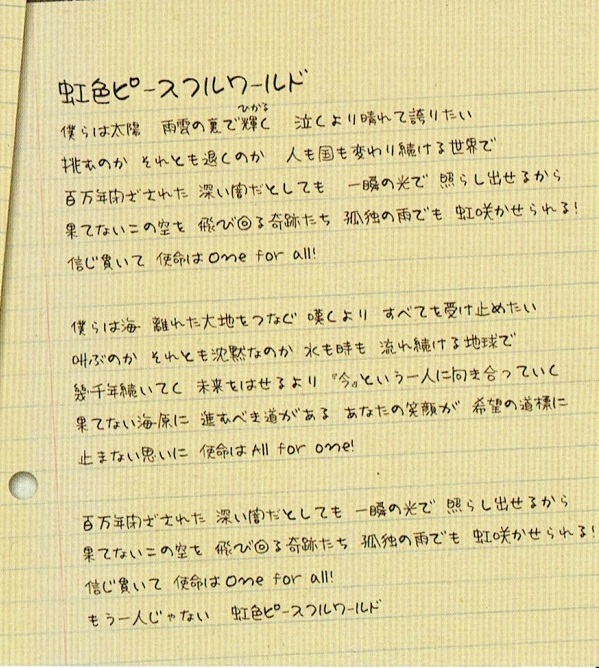 虹色ピースフルワールド
僕らは太陽 雨雲の裏で輝く 泣くより晴れて誇りたい
ひかる
挑むのか それとも退くのか 人も国も変わり続ける世界で
百万年閉ざされた 深い闇だとしても 一瞬の光で 照らし出せるから
果てないこの空を 飛び回る奇跡たち 孤独の雨でも 虹咲かせられる!
信じ貫いて 使命は One for all!
僕らは海 離れた大地をつなぐ 嘆くより すべてを受け止めたい
叫ぶのか それとも沈黙なのか 水も時も 流れ続ける地球で
幾千年続いてく 未来をはせるより 『今』という一人に向き合っていく
果てない海原に 進むべき道がある あなたの笑顔が 希望の道標に
止まない思いに 使命は All for one!
百万年閉ざされた 深い闇だとしても 一瞬の光で 照らし出せるから
果てないこの空を 飛び回る奇跡たち 孤独の雨でも 虹咲かせられる!
信じ貫いて 使命は One for all!
もう一人じゃない 虹色ピースフルワールド